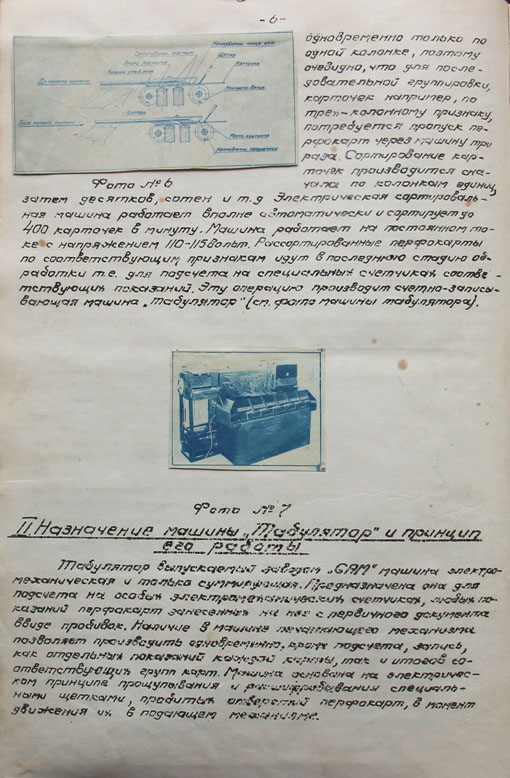 -6-
одновременно только по
одной колонке, поэтому
очевидно, что для после-
довательной группировки,
карточек например, по
трех-колонному признаку,
потребуется пропуск пе-
рфокарт через машину три
раза. Сортирование кар-
точек производится сна-
чала по колонкам единиц,
Фото №6
затем десятков, сотен и т.д Электрическая сортироваль-
ная машина работает вполне автоматически и сортирует до
400 карточек в минуту. Машина работает на постоянном то-
ке с напряжением 110-115 вольт. Рассортированные перфокарты
по соответствующим признакам идут в последнюю стадию об-
работки т.е. для подсчета на специальных счетчиках соотве-
тствующих показаний. Эту операцию производит счетно-записы-
вающая машина „Табулятор" (см. фото машины табулятора).
Фото №7
II. Назначение машины „Табулятор" и принцип
его работы
Табулятор выпускаемый заводом „САМ" машина электро-
механическая и только суммирующая. Предназначена она для
подсчета на особых электромеханических счетчиках, любых по-
казаний перфокарт занесенных на нее с первичного документа
ввиде пробивок. Наличие в машине печатающего механизма
позволяет производить одновременно, кроме подсчета, запись,
как отдельных показаний каждой карты, так и итогов со-
ответствующих групп карт. Машина основана на электричес-
ком принципе прощупывания и расшифровывания специаль-
ными щетками, пробитых отверстий перфокарт, в момент
движения их в подающем механизме.